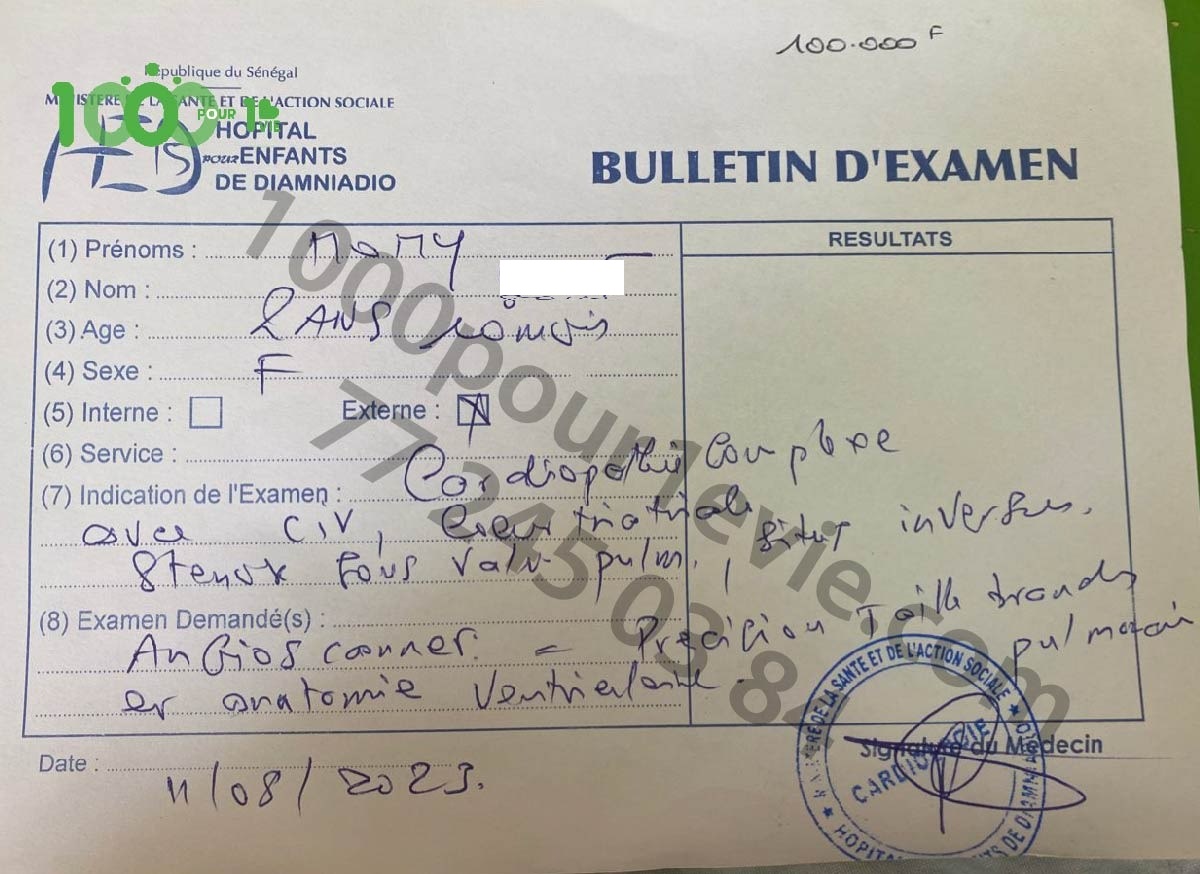 100.000 F
République du Sénégal
MINISTERE DE LA SANTE ET DE L'ACTION SOCIALE
1000 POUR 1 VIE
HOPITAL
pour ENFANTS
DE DIAMNIADIO
BULLETIN D'EXAMEN
(1) Prénoms : MOMY
(2) Nom :
(3) Age : 2 ANS
(4) Sexe : F
(5) Interne : Externe :
(6) Service :
(7) Indication de l'Examen : Cardiopathie Complexe
avec CIV, Coeur triatrial situs inversus.
Stenose sous valv pulm,
(8) Examen Demandé(s) :
Angioscanner. = Précision Taille branches pulmonaire
et anatomie Ventriculaire.
RESULTATS
Date : 11/08/2023.
Signature du Médecin
MINISTERE DE LA SANTE ET DE L'ACTION SOCIALE
CARDIOLOGIE
1000pour1evie.com
77 245 03 84